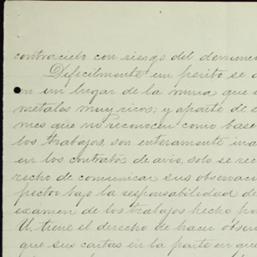 contracielo con riesgo del denunci
Dificilmente un perito se a
en un lugar de la mina que e
metales muy ricos; y aparte de e
mes que no reconocen como base
los trabajos, son enteramente ina
en los contratos de avio, solo se rec
recho de comunicar sus observaci
pector bajo la responsabilidad de
examen de los trabajos hecho po
U. tiene el derecho de hacer obser
que sus cartas en la parte en que